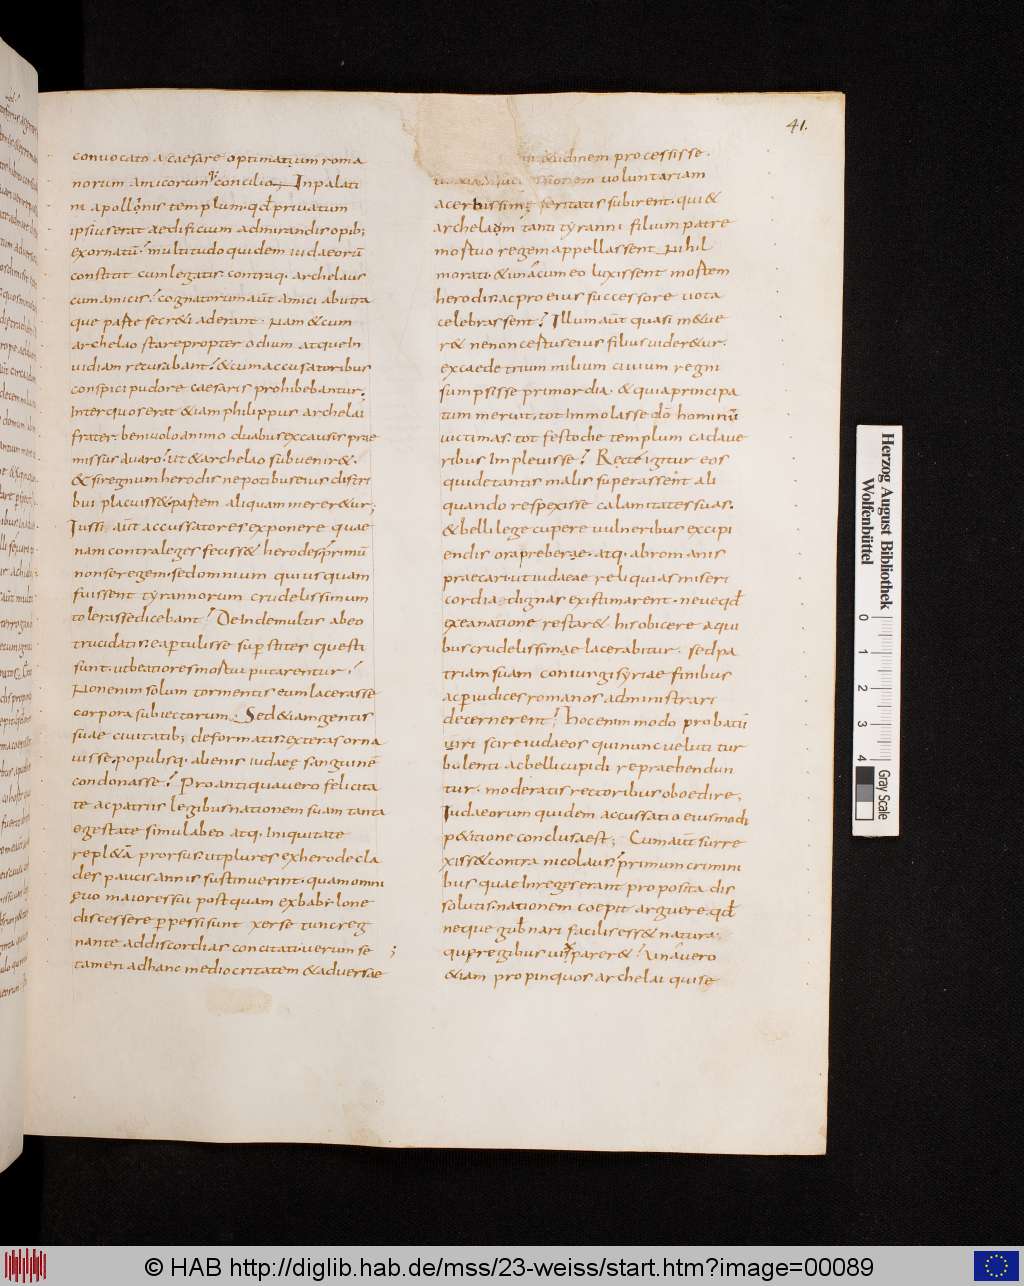 41.
convocato a caesare optimatium roma
norum amicorumq; concilio. In palati
ni apollonis templum. qd privatum
ipsius erat aedificium admirandis opib;
exornatū. multitudo quidem iudaeorū
constitit cum legatis. contraq. archelaus
cum amicis. cognatorum aūt amici ab utra
que parte secr&i aderant. Nam & cum
archelao stare propter odium atque In
uidiam recusabant. & cum accusatoribus
conspici pudore caesaris prohibebantur;
Inter quos erat &iam philippus archelai
frater. benivolo animo duabus ex causis prae
missus a varo. ut & archelao subvenir&.
& si regnum herodis nepotibus eius distri
bui placuiss& partem aliquam merer&ur;
Iussi aūt accussatores exponere quae
nam contra leges feciss& herodes. primū
non se regem sed omnium qui usquam
fuissent tyrannorum crudelissimum
tolerasse dicebant. Deinde multis ab eo
trucidatis. ea pertulisse superstites questi
sunt. ut beatiores mortui putarentur.
Non enim solum tormentis eum lacerasse
corpora subiectorum. Sed &iam gentis
suae civitatib; deformatis. exteras orna
uisse. populisq. alienis iudaeę sanguinē
condonasse. Pro antiqua vero felicita
te ac patriis legibus nationem suam tanta
egestate simul ab eo atq. Iniquitate
repl&ā prorsus. ut plures ex herode cla
des paucis annis sustinuerint. quam omni
ęvo maiores sui postquam ex babilone
discessere perpessi sunt xerse tunc reg
nante ad discordias concitati. uerum se
tamen ad hanc mediocritatem & adversae
&udinem processisse.
voluntariam
acerbissimę seritatis subirent. qui &
archelaom tanti tyranni filium patre
mortuo regem appellassent Nihil
morati. & unā cum eo luxissent mortem
herodis. ac pro eius successore vota
celebrassent. Illum aūt quasi m&ue
r& ne non certus eius filius uider&ur.
ex caede trium milium civium regni
sumpsisse primordia. & quia principa
tum meruit. tot Immolasse dō hominū
victimas. tot festo die templum cadave
ribus Implevisse. Recte igitur eos
qui de tantis malis superassent ali
quando respexisse calamitates suas.
& belli lege cupere vulneribus excipi
endis ora prebere. atq. ab romanis
praecari. ut iudaeae reliquias miseri
cordia dignas existimarent. neve qđ
ex ea natione restar& his obicere a qui
bus crudelissimae lacerabitur. sed pa
triam suam coniungi syriae finibus
ac per iudices romanos administrari
decernerent; hoc enim modo probatū
iri scire iudaeos qui nunc veluti tur
bulenti ac belli cupidi repraehendun
tur. moderatis rectoribus oboedire;
Iudaeorum quidem accussatio eiusmodi
p&itione conclusa est; Cum aūt surre
xiss& contra nicolaus. primum crimini
bus quae In reges erant proposita dis
solutis. nationem coepit arguere. qđ
neque gubnari facilis ess& natura.
quę regibus vix parer&. Una vero
&iam propinquos archelai qui se
Herzog August Bibliothek
Wolfenbüttel
0 1 2 3 4
Gray Scale
© HAB http://diglib.hab.de/mss/23-weiss/start.htm?image=00089